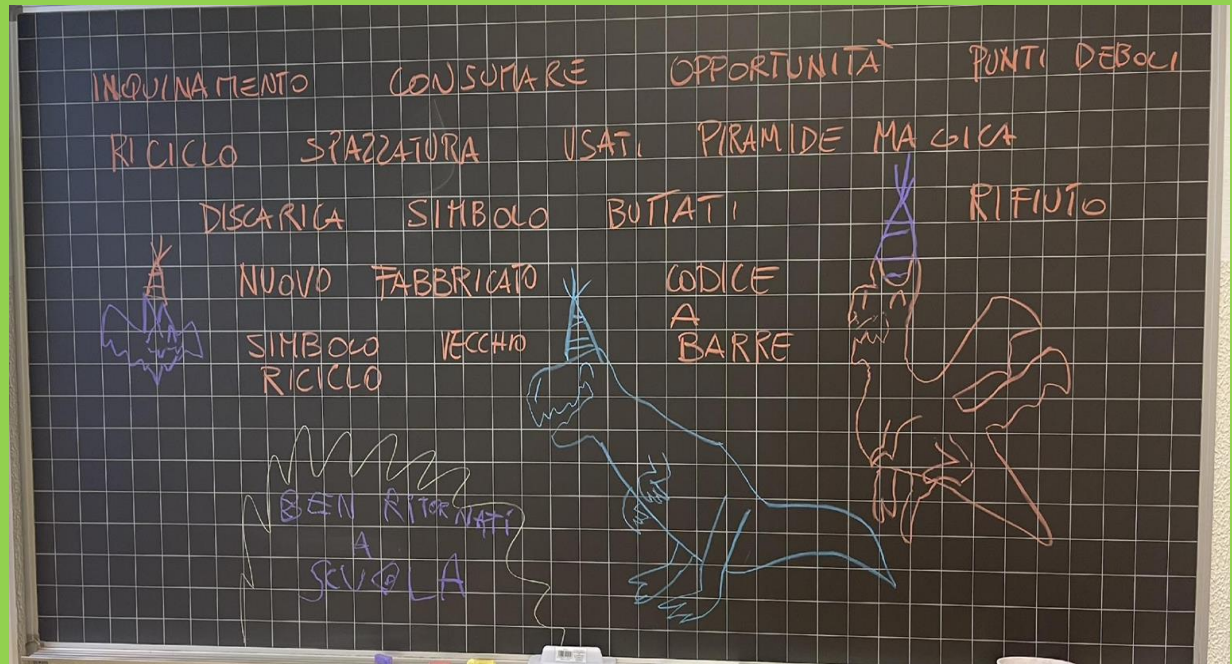 INQUINAMENTO CONSUMARE OPPORTUNITÀ PUNTI DEBOLI
RICICLO SPAZZATURA USATI PIRAMIDE MAGICA
DISCARICA SIMBOLO BUTTATI RIFIUTO
NUOVO FABBRICATO CODICE
A
SIMBOLO VECCHIO BARRE
RICICLO
BEN RITORNATI
A
SCUOLA